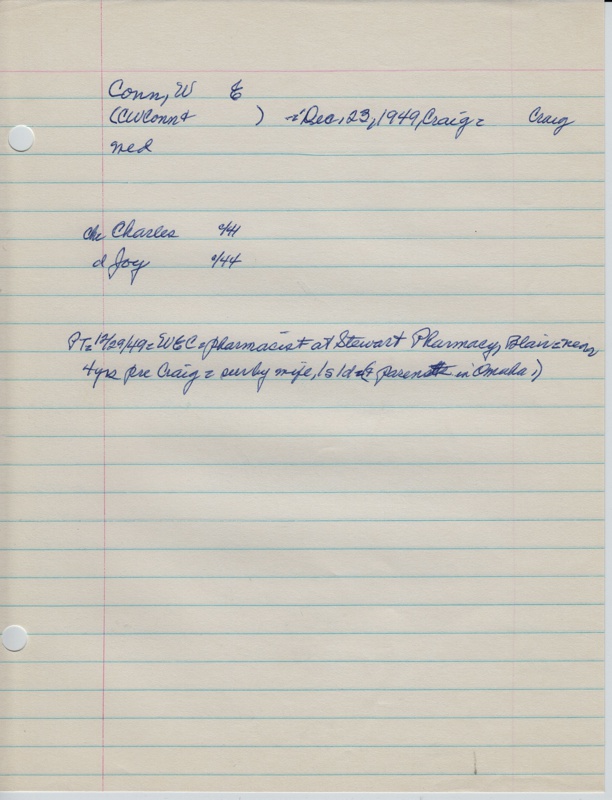 Conn, W E
(CWConn & ) = Dec. 23, 1949, Craig = Craig
med
ch Charles c/41
d Joy c/44
PT = 12/29/49 = WEC = pharmacist at Stewart Pharmacy, Blair = near
4 yrs pre Craig = sur by wife, 1s 1d = & parents in Omaha.)